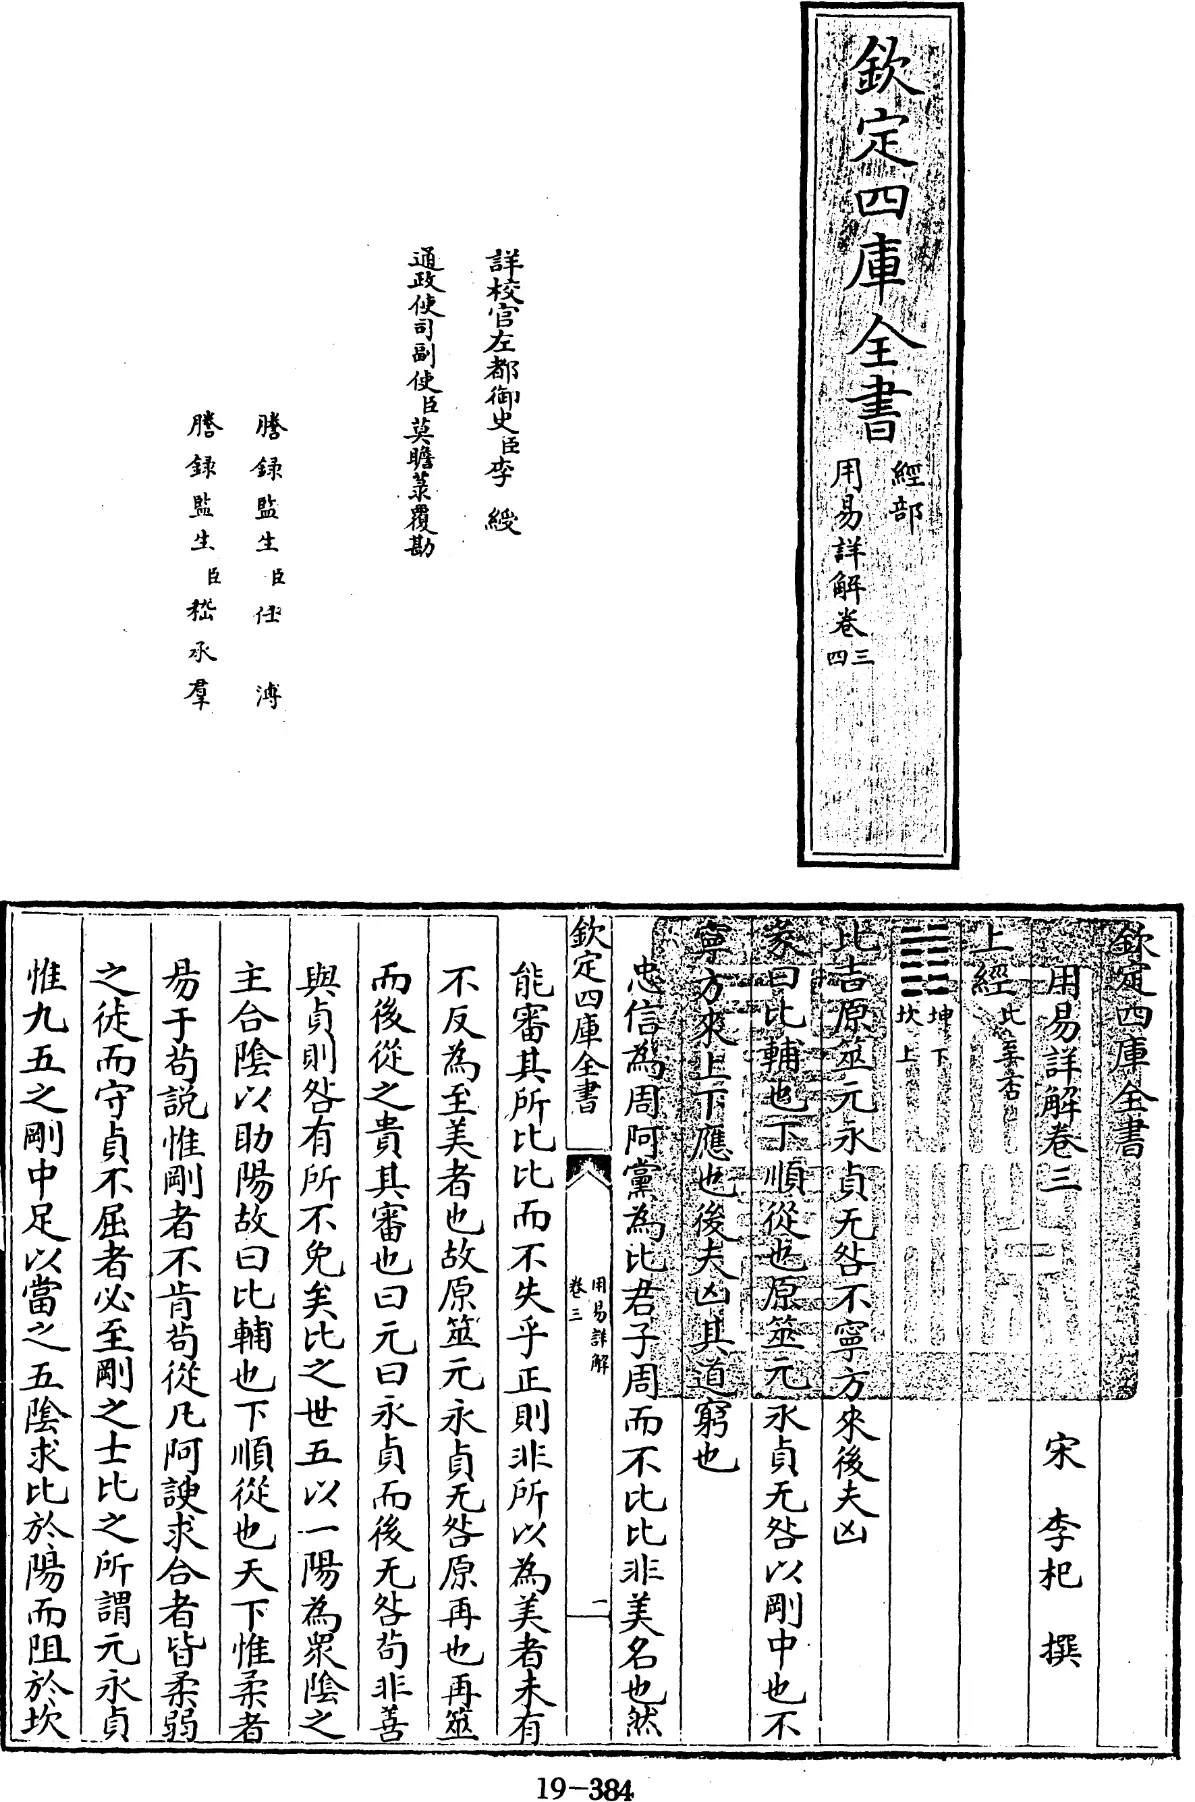 欽定四庫全書
經部
用易詳解卷三
四
詳校官左都御史臣李綬
通政使司副使臣莫瞻菉覆勘
謄録監生臣任溥
謄録監生臣嵇承羣
欽定四庫全書
用易詳解卷三
宋 李杞 撰
上經 比至否
坤下
坎上
比吉原筮元永貞无咎不寧方來後夫凶
彖曰比輔也下順從也原筮元永貞无咎以剛中也不
寧方來上下應也後夫凶其道窮也
忠信為周阿黨為比君子周而不比比非美名也然
欽定四庫全書
用易詳解
卷三
一
能審其所比比而不失乎正則非所以為美者未有
不反為至美者也故原筮元永貞无咎原再也再筮
而後從之貴其審也曰元曰永貞而後无咎茍非善
與貞則咎有所不免矣比之世五以一陽為衆陰之
主合陰以助陽故曰比輔也下順從也天下惟柔者
易于茍說惟剛者不肯茍從凡阿諛求合者皆柔弱
之徒而守貞不屈者必至剛之士比之所謂元永貞
惟九五之剛中足以當之五陰求比於陽而阻於坎
19-384